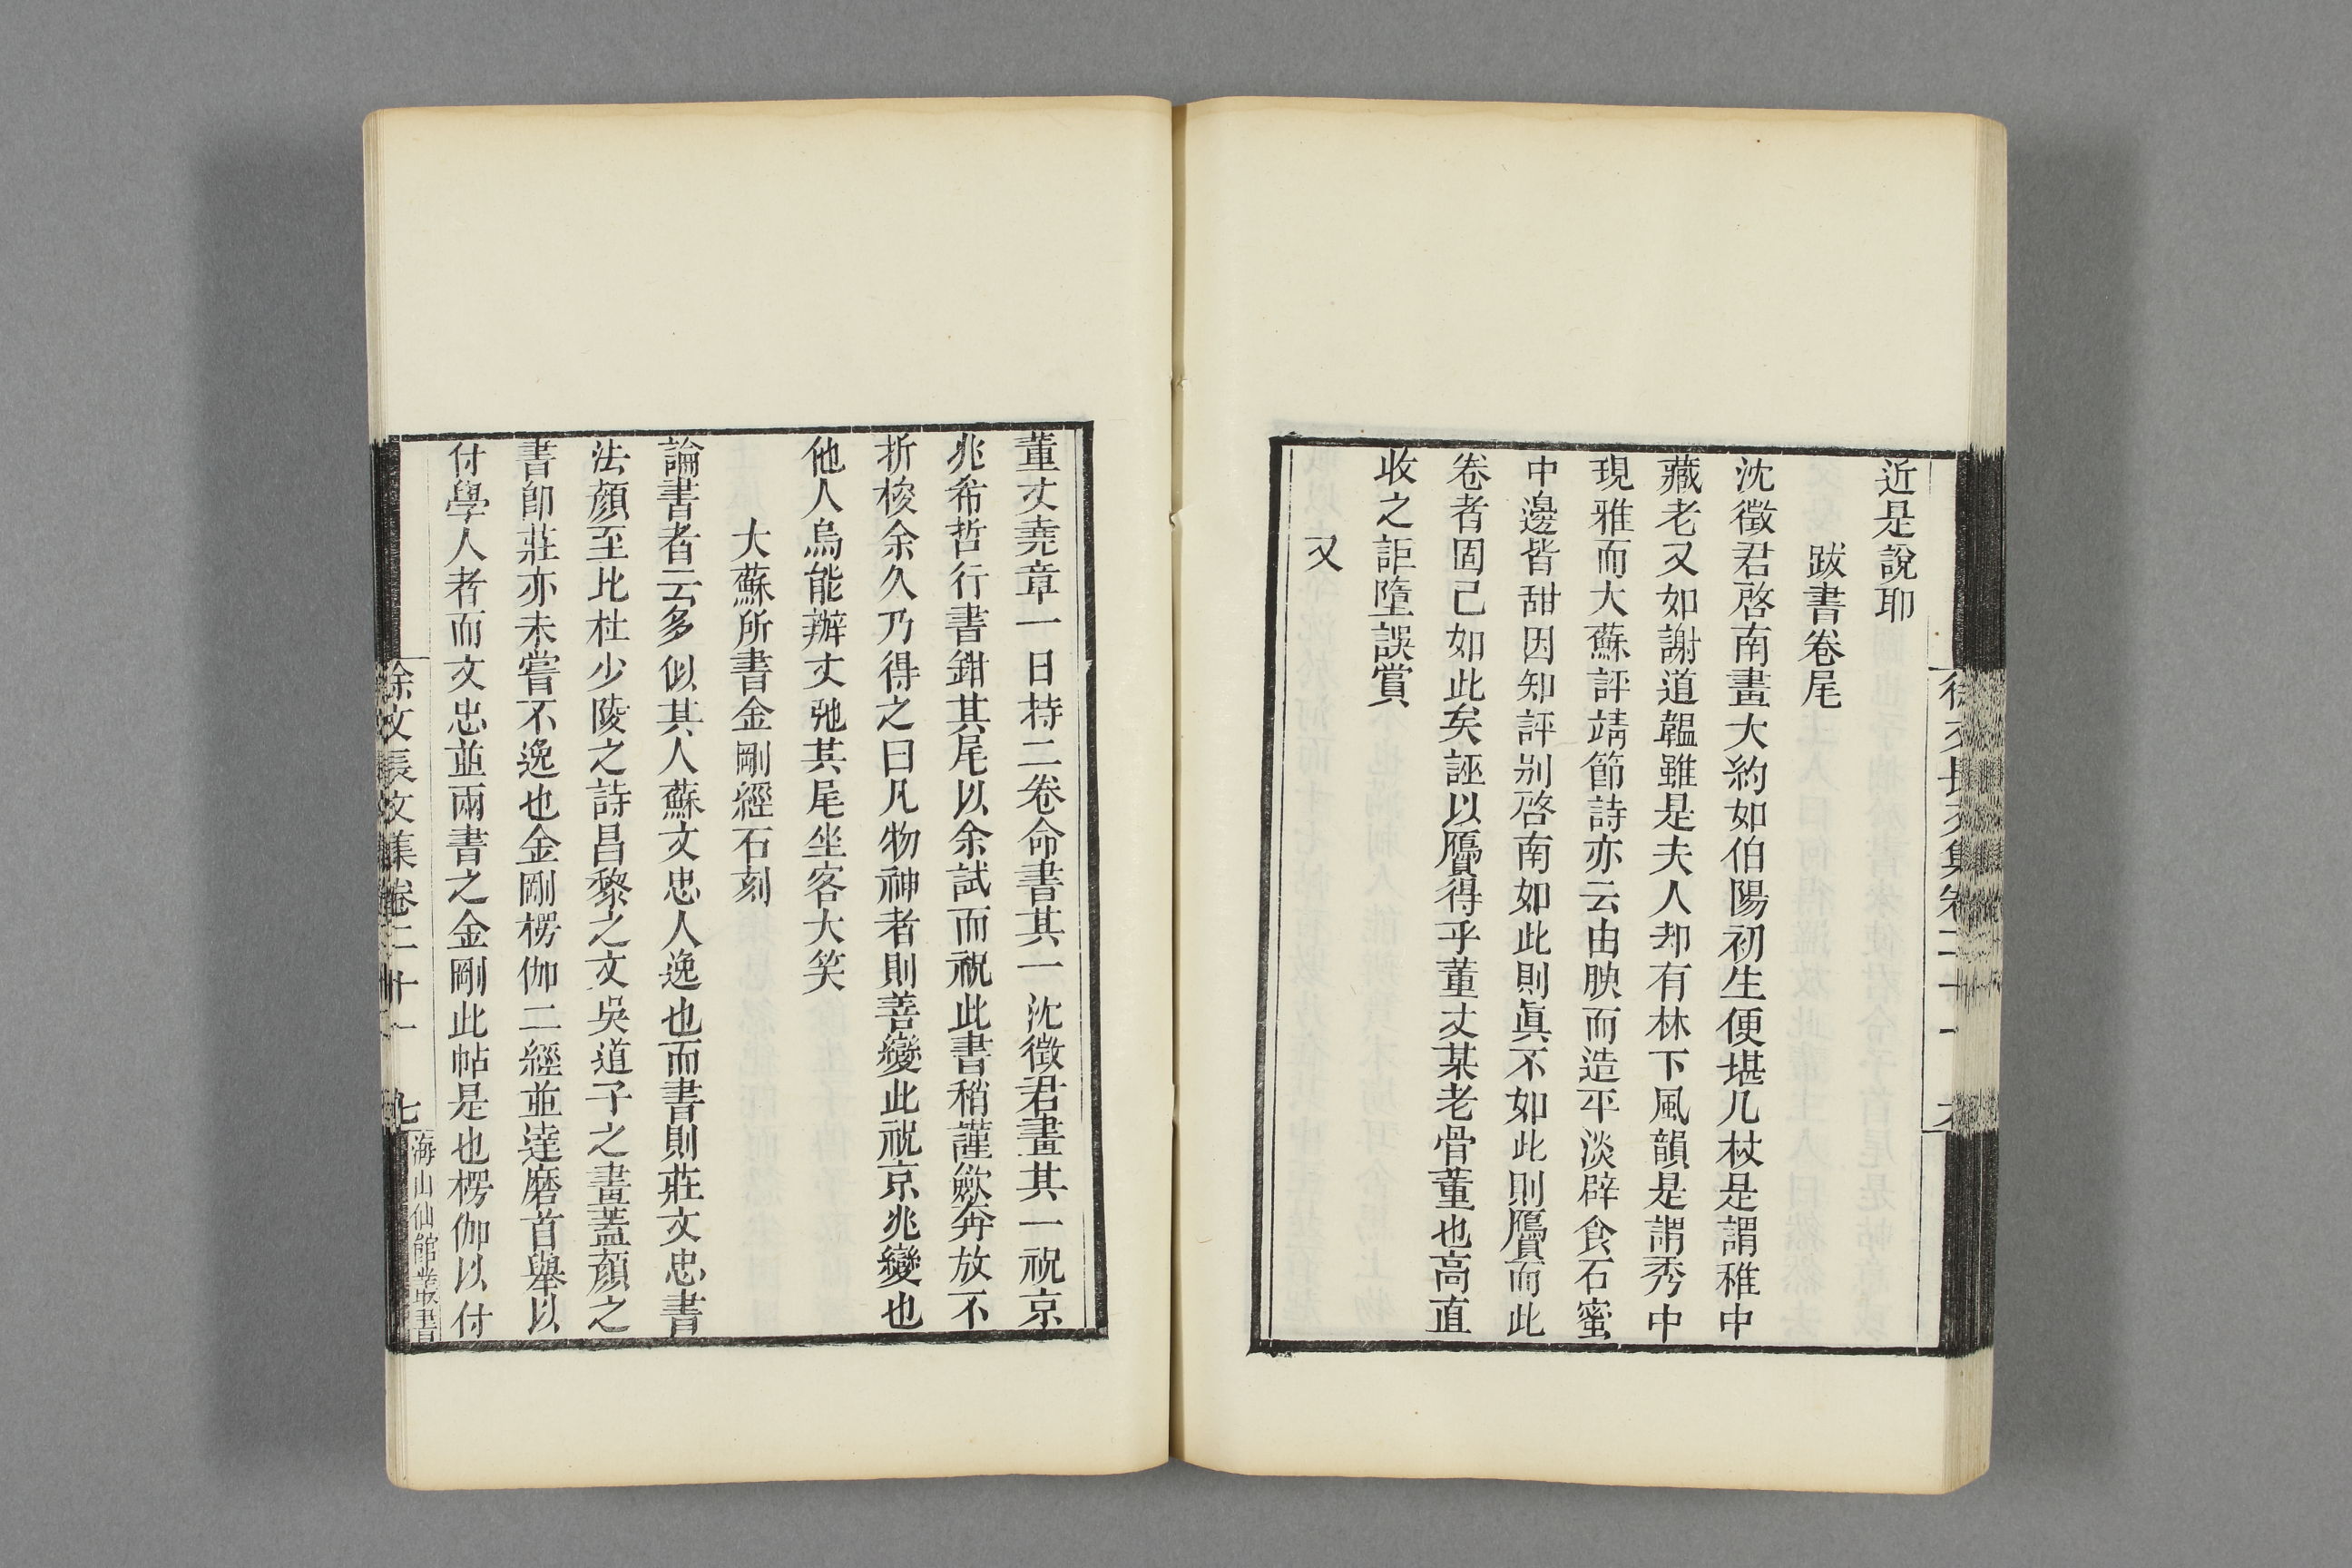 近是說耶
跋書卷尾
沈徵君啓南畫大約如伯陽初生便堪几杖是謂稚中
藏老又如謝道韞雖是夫人却有林下風韻是謂秀中
現雅而大蘇評靖節詩亦云由腴而造平淡辟食石蜜
中邊皆甜因知評别啓南如此則眞不如此則贗而此
卷者固己如此矣誣以贗得乎董丈某老骨董也高直
收之詎墮誤賞
又
徐文長文集卷二十一 六
董丈堯章一日持二卷命書其一沈徵君畫其一祝京
兆希哲行書鉗其尾以余試而祝此書稍謹歛奔放不
折梭余久乃得之曰凡物神者則善變此祝京兆變也
他人烏能辦丈弛其尾坐客大笑
大蘇所書金剛經石刻
論書者云多似其人蘇文忠人逸也而書則莊文忠書
法顏至比杜少陵之詩昌黎之文吳道子之畫蓋顏之
書卽莊亦未嘗不逸也金剛楞伽二經並達磨首舉以
付學人者而文忠並兩書之金剛此帖是也楞伽以付
徐文長文集卷二十一 七
海山仙館叢書